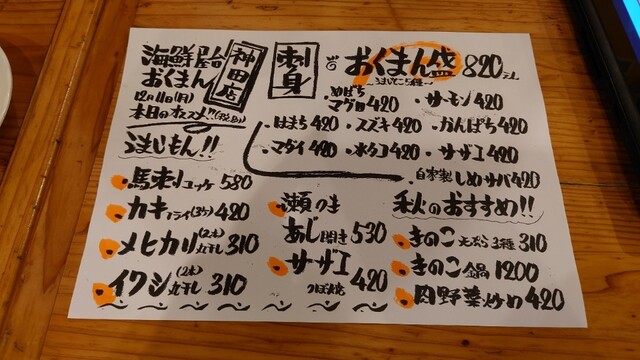 海鮮屋台
おくまん
神田店
12月11日(月)
本日のオススメ!!(税込)
刺身
おくまん盛 820えん
めばちマグロ 420 ・サーモン 420
・はまち 420 ・スズキ 420 ・かんぱち 420
・マダイ 420 ・水タコ 420 ・サザエ 420
・自家製しめサバ 420
うまいもん!!
馬刺しユッケ 580
カキフライ(3ケ) 420
メヒカリ(2本)丸干し 310
イワシ(2本)丸干し 310
瀬つき
あじ開き 530
サザエ
つぼ焼き 420
秋のおすすめ!!
きのこ天ぷら3種 310
きのこ鍋 1200
肉野菜炒め 420